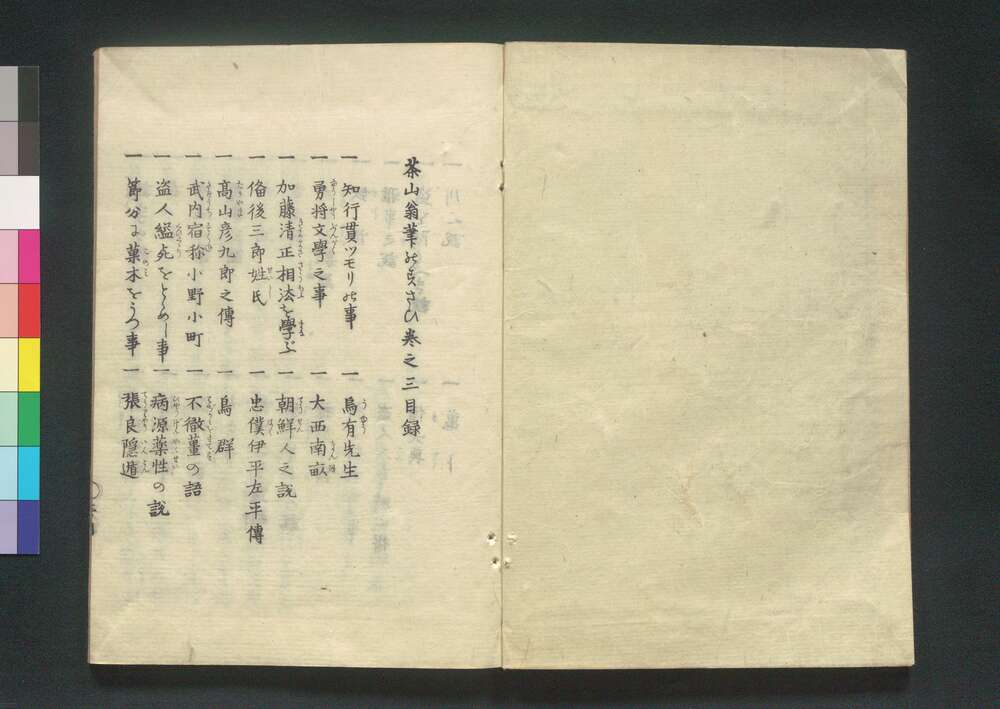 茶山翁筆のすさひ巻之三目録
一 知行貫ツモリの事 一 烏有先生
一 勇将文學之事 一 大西南畝
一 加藤清正相法を學ぶ 一 朝鮮人之説
一 俻後三郎姓氏 一 忠僕伊平左平傳
一 高山彦九郎之傳 一 鳥群
一 武内宿祢小野小町 一 不徹薑の語
一 盗人縊死をとゞめし事 一 病源薬性の説
一 節分に菓木をうつ事 一 張良隠遁